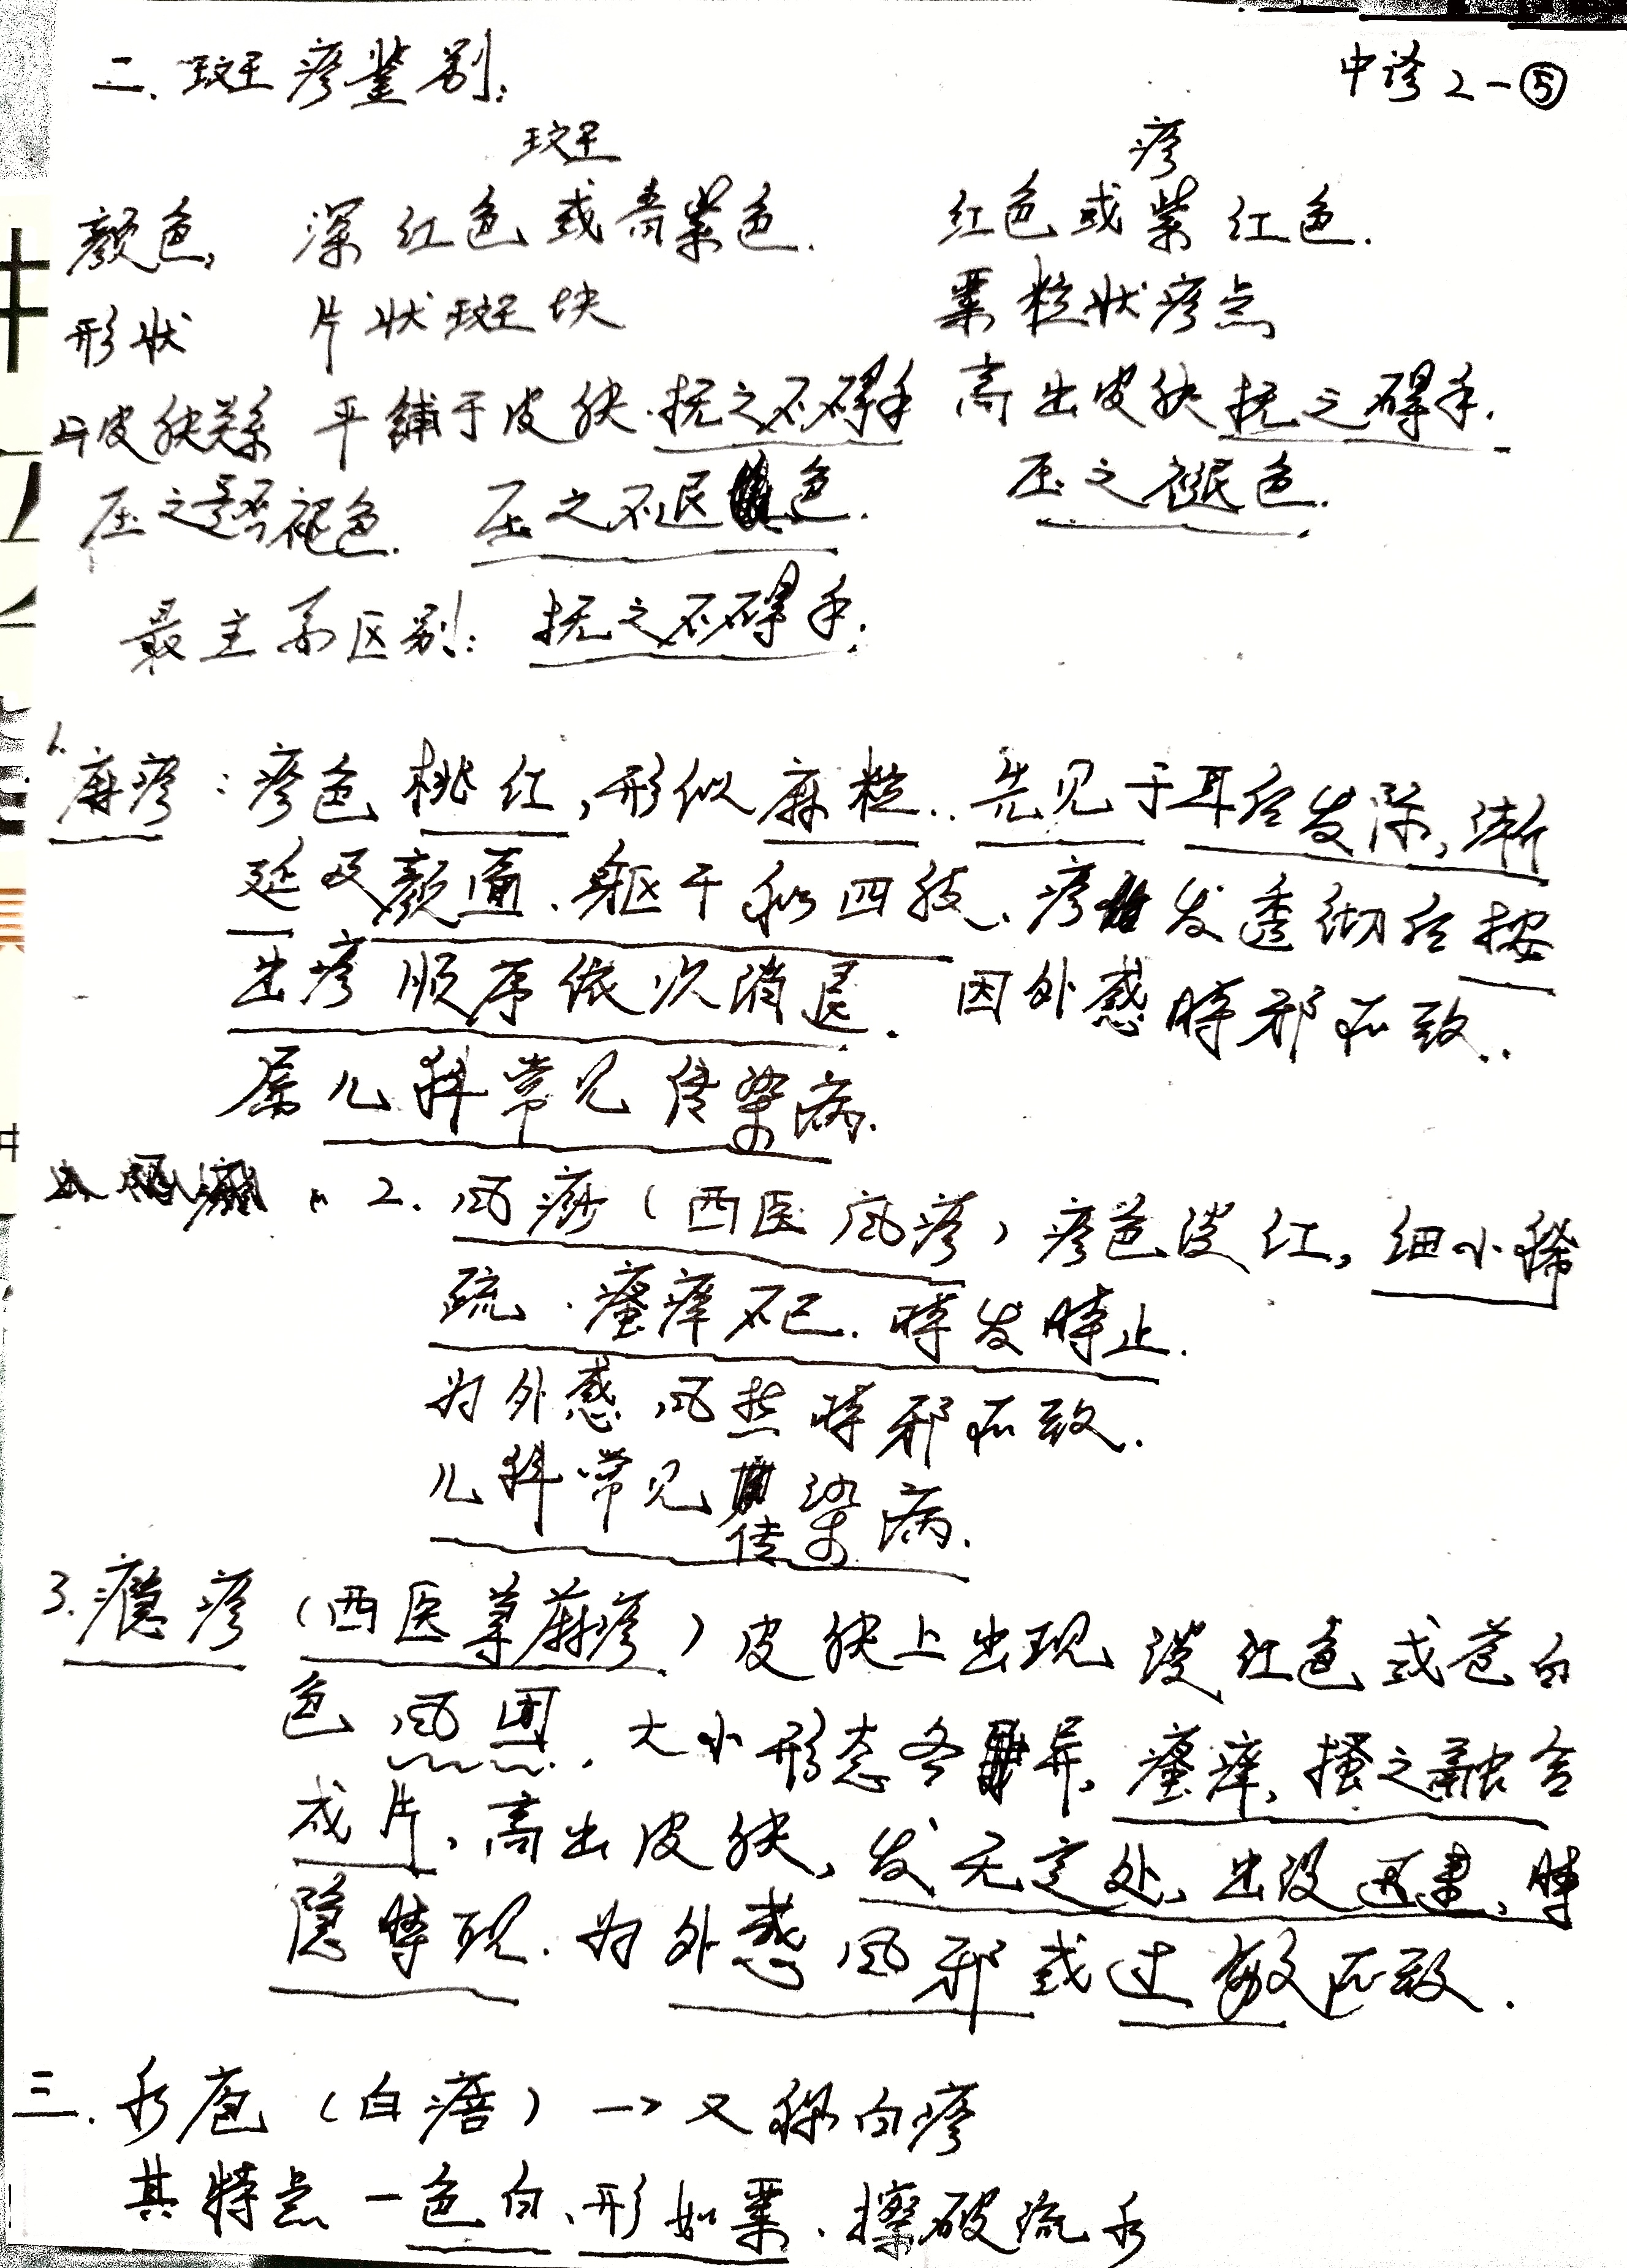 中诊2-⑤
二.斑疹鉴别:
斑 疹
颜色, 深红色或青紫色. 红色或紫红色.
形状 片状斑块 粟粒状疹点
与皮肤关系 平铺于皮肤.抚之不碍手 高出皮肤抚之碍手.
压之是否褪色. 压之不退色. 压之褪色.
最主要区别: 抚之不碍手.
1.麻疹:疹色桃红,形似麻粒..先见于耳后发际,渐
延及颜面、躯干和四肢、疹发透彻后按
出疹顺序依次消退. 因外感時邪所致..
属儿科常见传染病.
2.风痧(西医风疹)疹色淡红,细小稀
疏.瘙痒不已.時发時止.
为外感风热時邪所致.
儿科常见传染病.
3.瘾疹(西医荨麻疹)皮肤上出现淡红色或苍白
色风团.大小形态各异,瘙痒,搔之融合
成片,高出皮肤,发无定处,出没迅速,時
隐時现.为外感风邪或过敏所致.
三.水疱(白㾦)→又称白疹
其特点-色白、形如粟.擦破流水